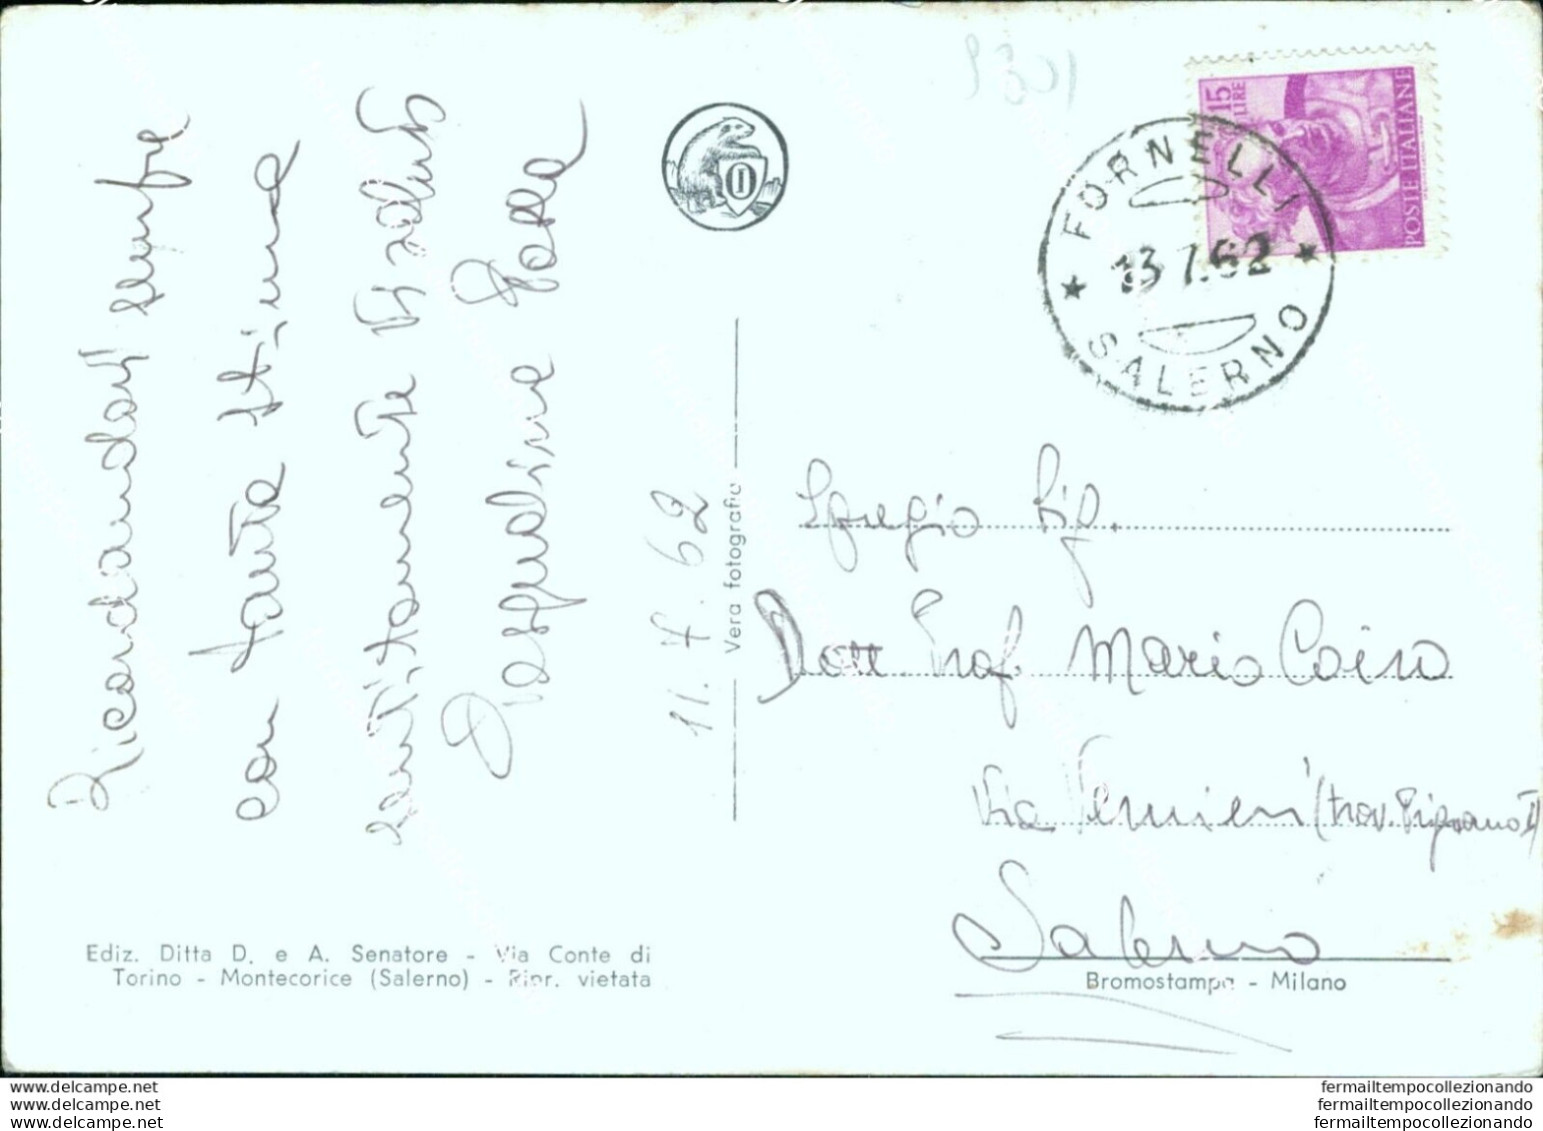 Ricordandoti sempre
con tanta stima
sentitamente ti saluto
Pasqualina
11.7.62
Vera fotografia
15 LIRE
POSTE ITALIANE
FORNELLI
13 7.62
SALERNO
Egregio Sig.
Dott. Prof. Mario Coiro
Via Vernieri (trav.
Salerno
Ediz. Ditta D. e A. Senatore - Via Conte di
Torino - Montecorice (Salerno) - Ripr. vietata
Bromostampa - Milano
www.delcampe.net
www.delcampe.net
www.delcampe.net
fermailtempocollezionando
fermailtempocollezionando
fermailtempocollezionando